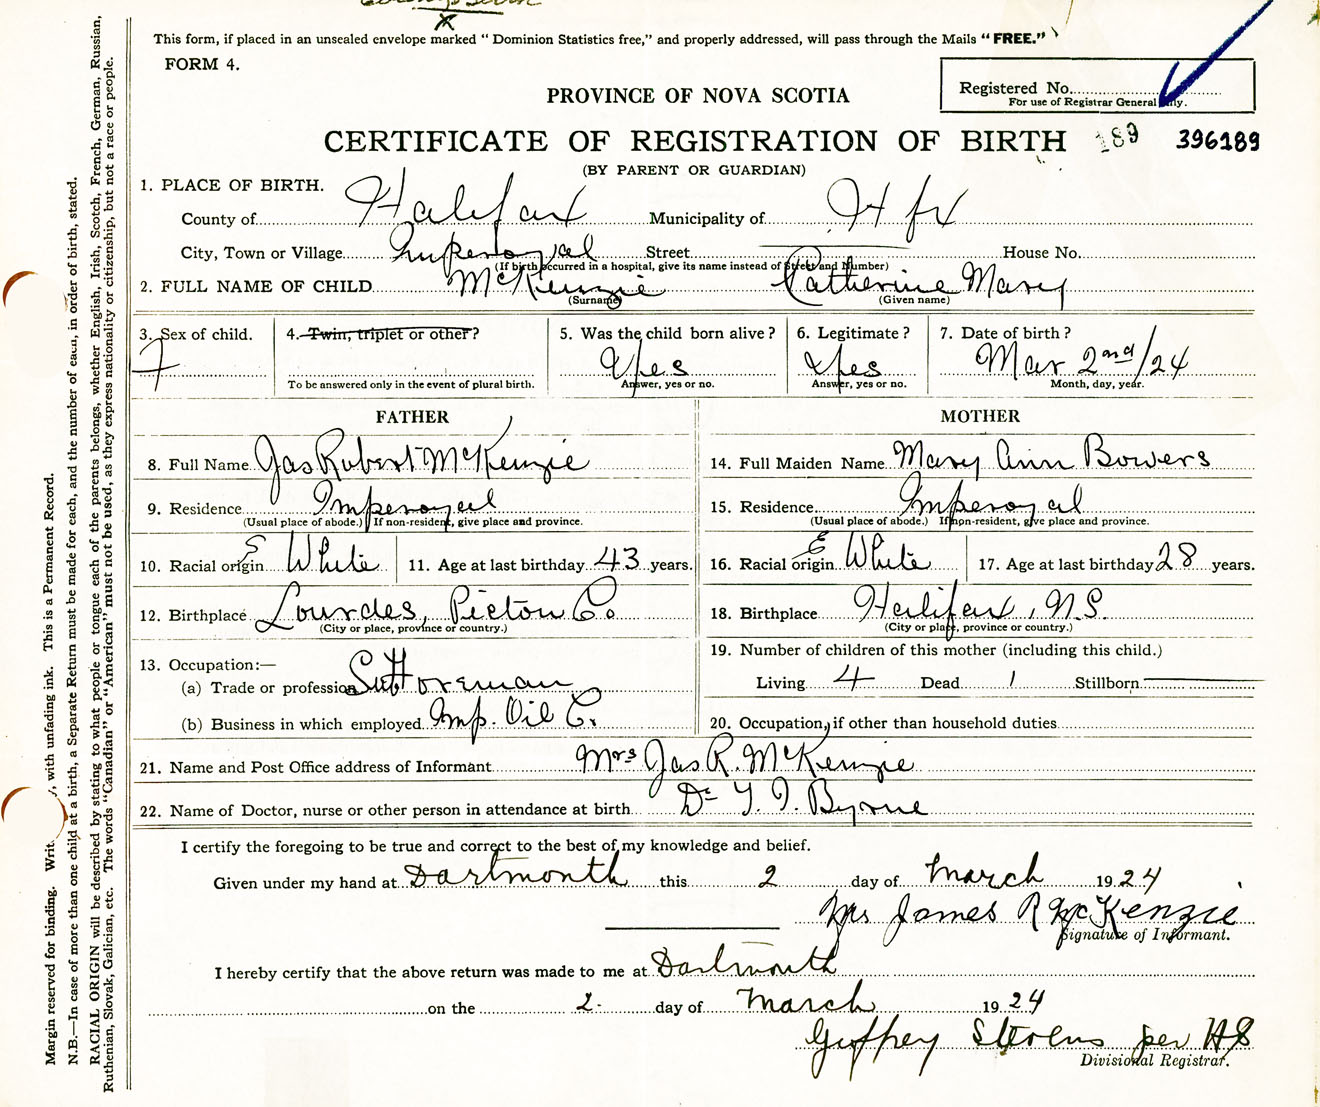 This form, if placed in an unsealed envelope marked "Dominion Statistics free," and properly addressed, will pass through the Mails "FREE."
FORM 4.
Registered No.
For use of Registrar General only.
PROVINCE OF NOVA SCOTIA
CERTIFICATE OF REGISTRATION OF BIRTH 189 396189
(BY PARENT OR GUARDIAN)
1. PLACE OF BIRTH.
County of Halifax Municipality of Hfx
City, Town or Village Imperoyal Street House No.
(If birth occurred in a hospital, give its name instead of Street and Number)
2. FULL NAME OF CHILD McKenzie Catherine Mary
(Surname) (Given name)
3. Sex of child. 4. Twin, triplet or other? 5. Was the child born alive? 6. Legitimate? 7. Date of birth?
F Yes Yes Mar 2nd/24
To be answered only in the event of plural birth. Answer, yes or no. Answer, yes or no. Month, day, year.
FATHER MOTHER
8. Full Name Jas Robert McKenzie 14. Full Maiden Name Mary Ann Bowers
9. Residence Imperoyal 15. Residence Imperoyal
(Usual place of abode.) If non-resident, give place and province. (Usual place of abode.) If non-resident, give place and province.
10. Racial origin E White 11. Age at last birthday 43 years. 16. Racial origin E White 17. Age at last birthday 28 years.
12. Birthplace Lourdes, Pictou Co. 18. Birthplace Halifax, N.S.
(City or place, province or country.) (City or place, province or country.)
13. Occupation:— 19. Number of children of this mother (including this child.)
(a) Trade or profession foreman Living 4 Dead 1 Stillborn
(b) Business in which employed Imp. Oil C. 20. Occupation, if other than household duties
21. Name and Post Office address of Informant Mrs Jas R. McKenzie
22. Name of Doctor, nurse or other person in attendance at birth Dr T. I. Byrne
I certify the foregoing to be true and correct to the best of my knowledge and belief.
Given under my hand at Dartmouth this 2 day of March 1924
Mrs James R McKenzie
Signature of Informant.
I hereby certify that the above return was made to me at Dartmouth
on the 2. day of March 1924
Geoffrey Stevens per HS
Divisional Registrar.
Margin reserved for binding. Writ , with unfading ink. This is a Permanent Record.
N.B.—In case of more than one child at a birth, a Separate Return must be made for each, and the number of each, in order of birth, stated.
RACIAL ORIGIN will be described by stating to what people or tongue each of the parents belongs, whether English, Irish, Scotch, French, German, Russian,
Ruthenian, Slovak, Galician, etc. The words "Canadian" or "American" must not be used, as they express nationality or citizenship, but not a race or people.